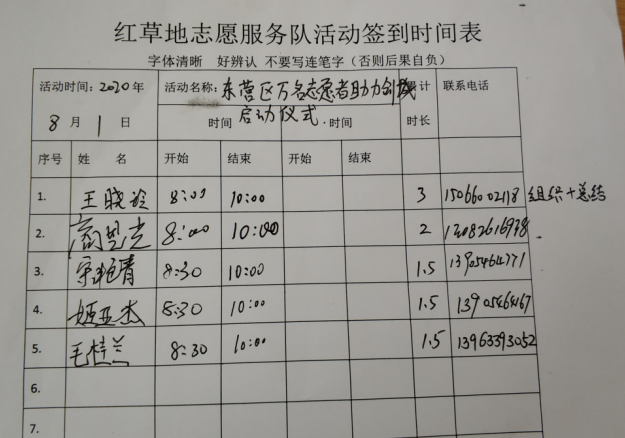 红草地志愿服务队活动签到时间表
字体清晰 好辨认 不要写连笔字（否则后果自负）
活动时间：2020年 活动名称：东营区万名志愿者助力创城 累计 联系电话
8月1日 时间 启动仪式 时间 时长
序号 姓 名 开始 结束 开始 结束
1. 王晓玲 8:00 10:00 3 15066002118 组织+总结
2. 8:00 10:00 2
3. 8:30 10:00 1.5 13905464771
4. 姬亚杰 8:30 10:00 1.5
5. 毛桂兰 8:30 10:00 1.5 13963393052
6.
7.